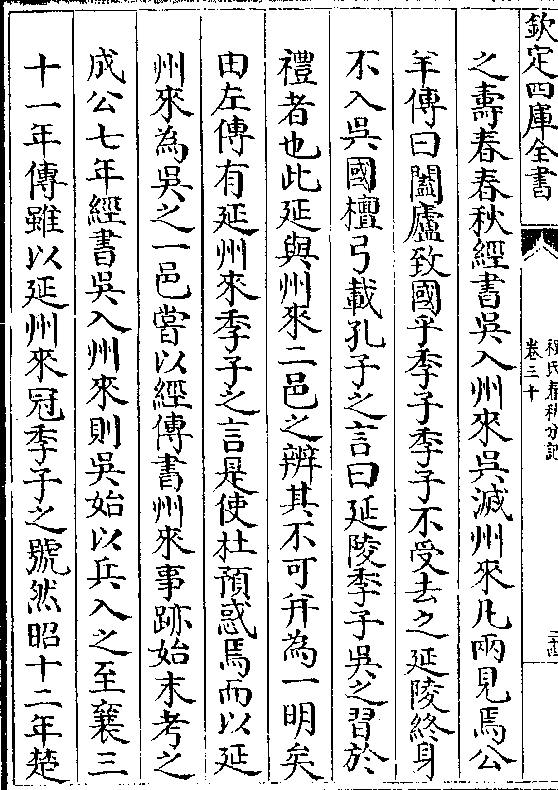 欽定四庫全書
程氏春秋分記
卷三十
之壽春春秋經書吳入州來吳滅州來凡兩見焉公
羊傳曰闔廬致國乎季子季子不受去之延陵終身
不入吳國檀弓載孔子之言曰延陵季子吳之習於
禮者也此延與州來二邑之辨其不可并為一明矣
由左傳有延州來季子之言是使杜預惑焉而以延
州來為吳之一邑嘗以經傳書州來事跡始末考之
成公七年經書吳入州來則吳始以兵入之至襄三
十一年傳雖以延州來冠季子之號然昭十二年楚